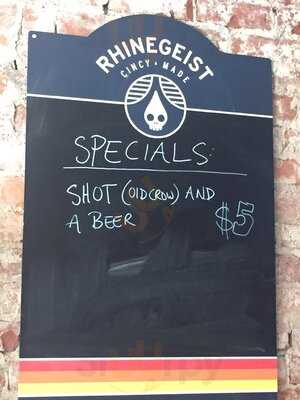 RHINEGEIST
CINCY • MADE
SPECIALS:
SHOT (OLD CROW) AND
A BEER $5